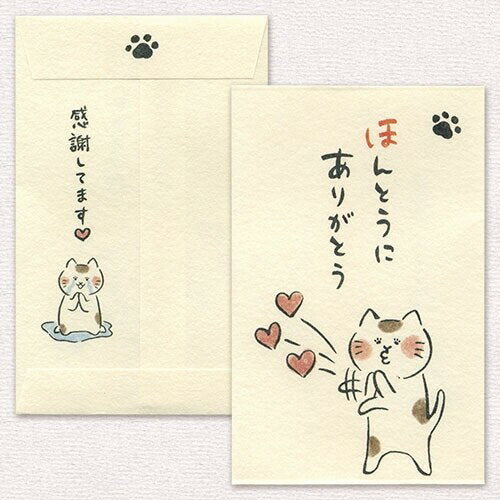 感謝してます♥
ほんとうに
ありがとう